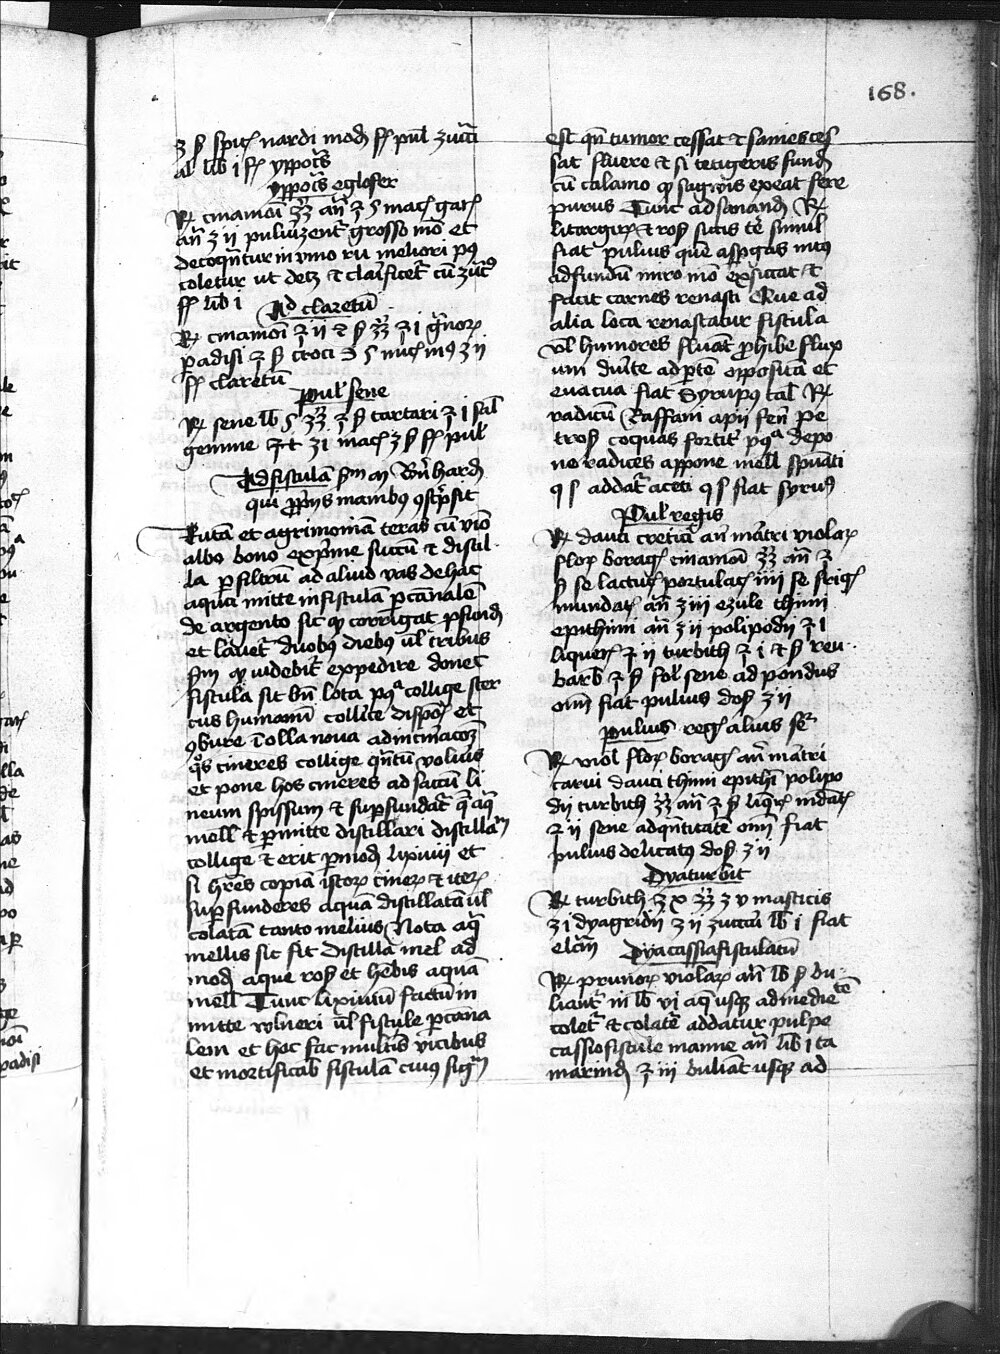 168.
ʒ ß spice nardi modū ff pul zuccari
al lib i ff ypocras
ypocras egloser
℞ cinamoi ʒʒ an ʒ s maci gar
an ʒ ii pulverizent grosso mo et
decoquntur in vino rii meliori pq
coletur ut decz et clarificet cū zuc
ff lib i
Ad claretū
℞ cinamoi ʒ ii et ß ʒʒ ʒ i granor
paradisi ʒ ß croci ℈ s nuc mq ʒ ii
ff claretū
Pul sene
℞ sene lib s ʒʒ ʒ ß tartari ʒ i sal
gemme ʒ i maci ʒ ß ff pul
Ad fistulā
qui propriis manibq
Rutā et agrimoniam teras cū vio
albo bono exprime succū et distil
la per filtrū ad aliud vas de hac
aqua mitte in fistula per canalē
de argento sic q corrigat profundū
et lavet duobq diebq ul tribus
sm q videbit expedire donec
fistula sit bn lota pqa collige ster
cus humanū collice
qbure ī olla nova ad incineracōz
qos cineres collige qntū volius
et pone hos cineres ad saccū li
neum spissum et supfundat q aq
mell et pmitte distillari distillam
collige et erit pmod lixivii et
si hres copiā istor ciner et iter
superfunderes aquā distillatā ul
colatā tanto melius Nota aq
mellis sic fit distilla mel ad
mod aque ros et hebis aquā
mell Tunc lixiviū factū in
mitte vulneri ul fistule per cana
lem et hoc fac multis vicibus
et mortificab fistulā cuiq signm
est qn tumor cessat et sanies ces
sat fluere et si tetigeris fund
cū calamo q sagwis exeat fere
purus Tunc ad sanand ℞
litargir et ros siccis te simul
fiat pulvis quē aspgas intq
ad fundū miro mō exsiccat et
facit carnes renasci Que ad
alia loca renascatur fistula
vl humores fluat phibe flux
um ad ptē oppositā et
evacua fiat syrupq tal ℞
radicū Raffani apii fen pe
tros coquas fortit pqa depo
ne radices appone mell spumati
q s addat aceti q s fiat syruq
Pul regis
℞ dauci cretici an matri violar
flor borag cinamoi ʒʒ an ʒ
ß se lactuc portulac iiii se frig
mundat an ʒ iii ezule thimi
epithimi an ʒ ii polipodii ʒ i
liquer ʒ ii turbith ʒ i et ß reu
barb ʒ ß fol sene ad pondus
omī fiat pulvis dos ʒ ii
pulvis reg alius
℞ viol flor borag an matri
carui dauci thimi epithi polipo
dii turbith ʒʒ an ʒ ß liqr mdat
ʒ ii sene ad qntitatē omī fiat
pulvis delicatq dos ʒ ii
Dyaturbit
℞ turbith ʒ x ʒʒ ʒ v masticis
ʒ i dyagridii ʒ ii zuccari lib i fiat
elcm
Dyacassiafistulatū
℞ prunor violar an lib ß bu
liant in lib vi aq usq ad medietē
colet et colatē addatur pulpe
cassiafistule manne an lib i ta
marind ʒ iii buliat usq ad